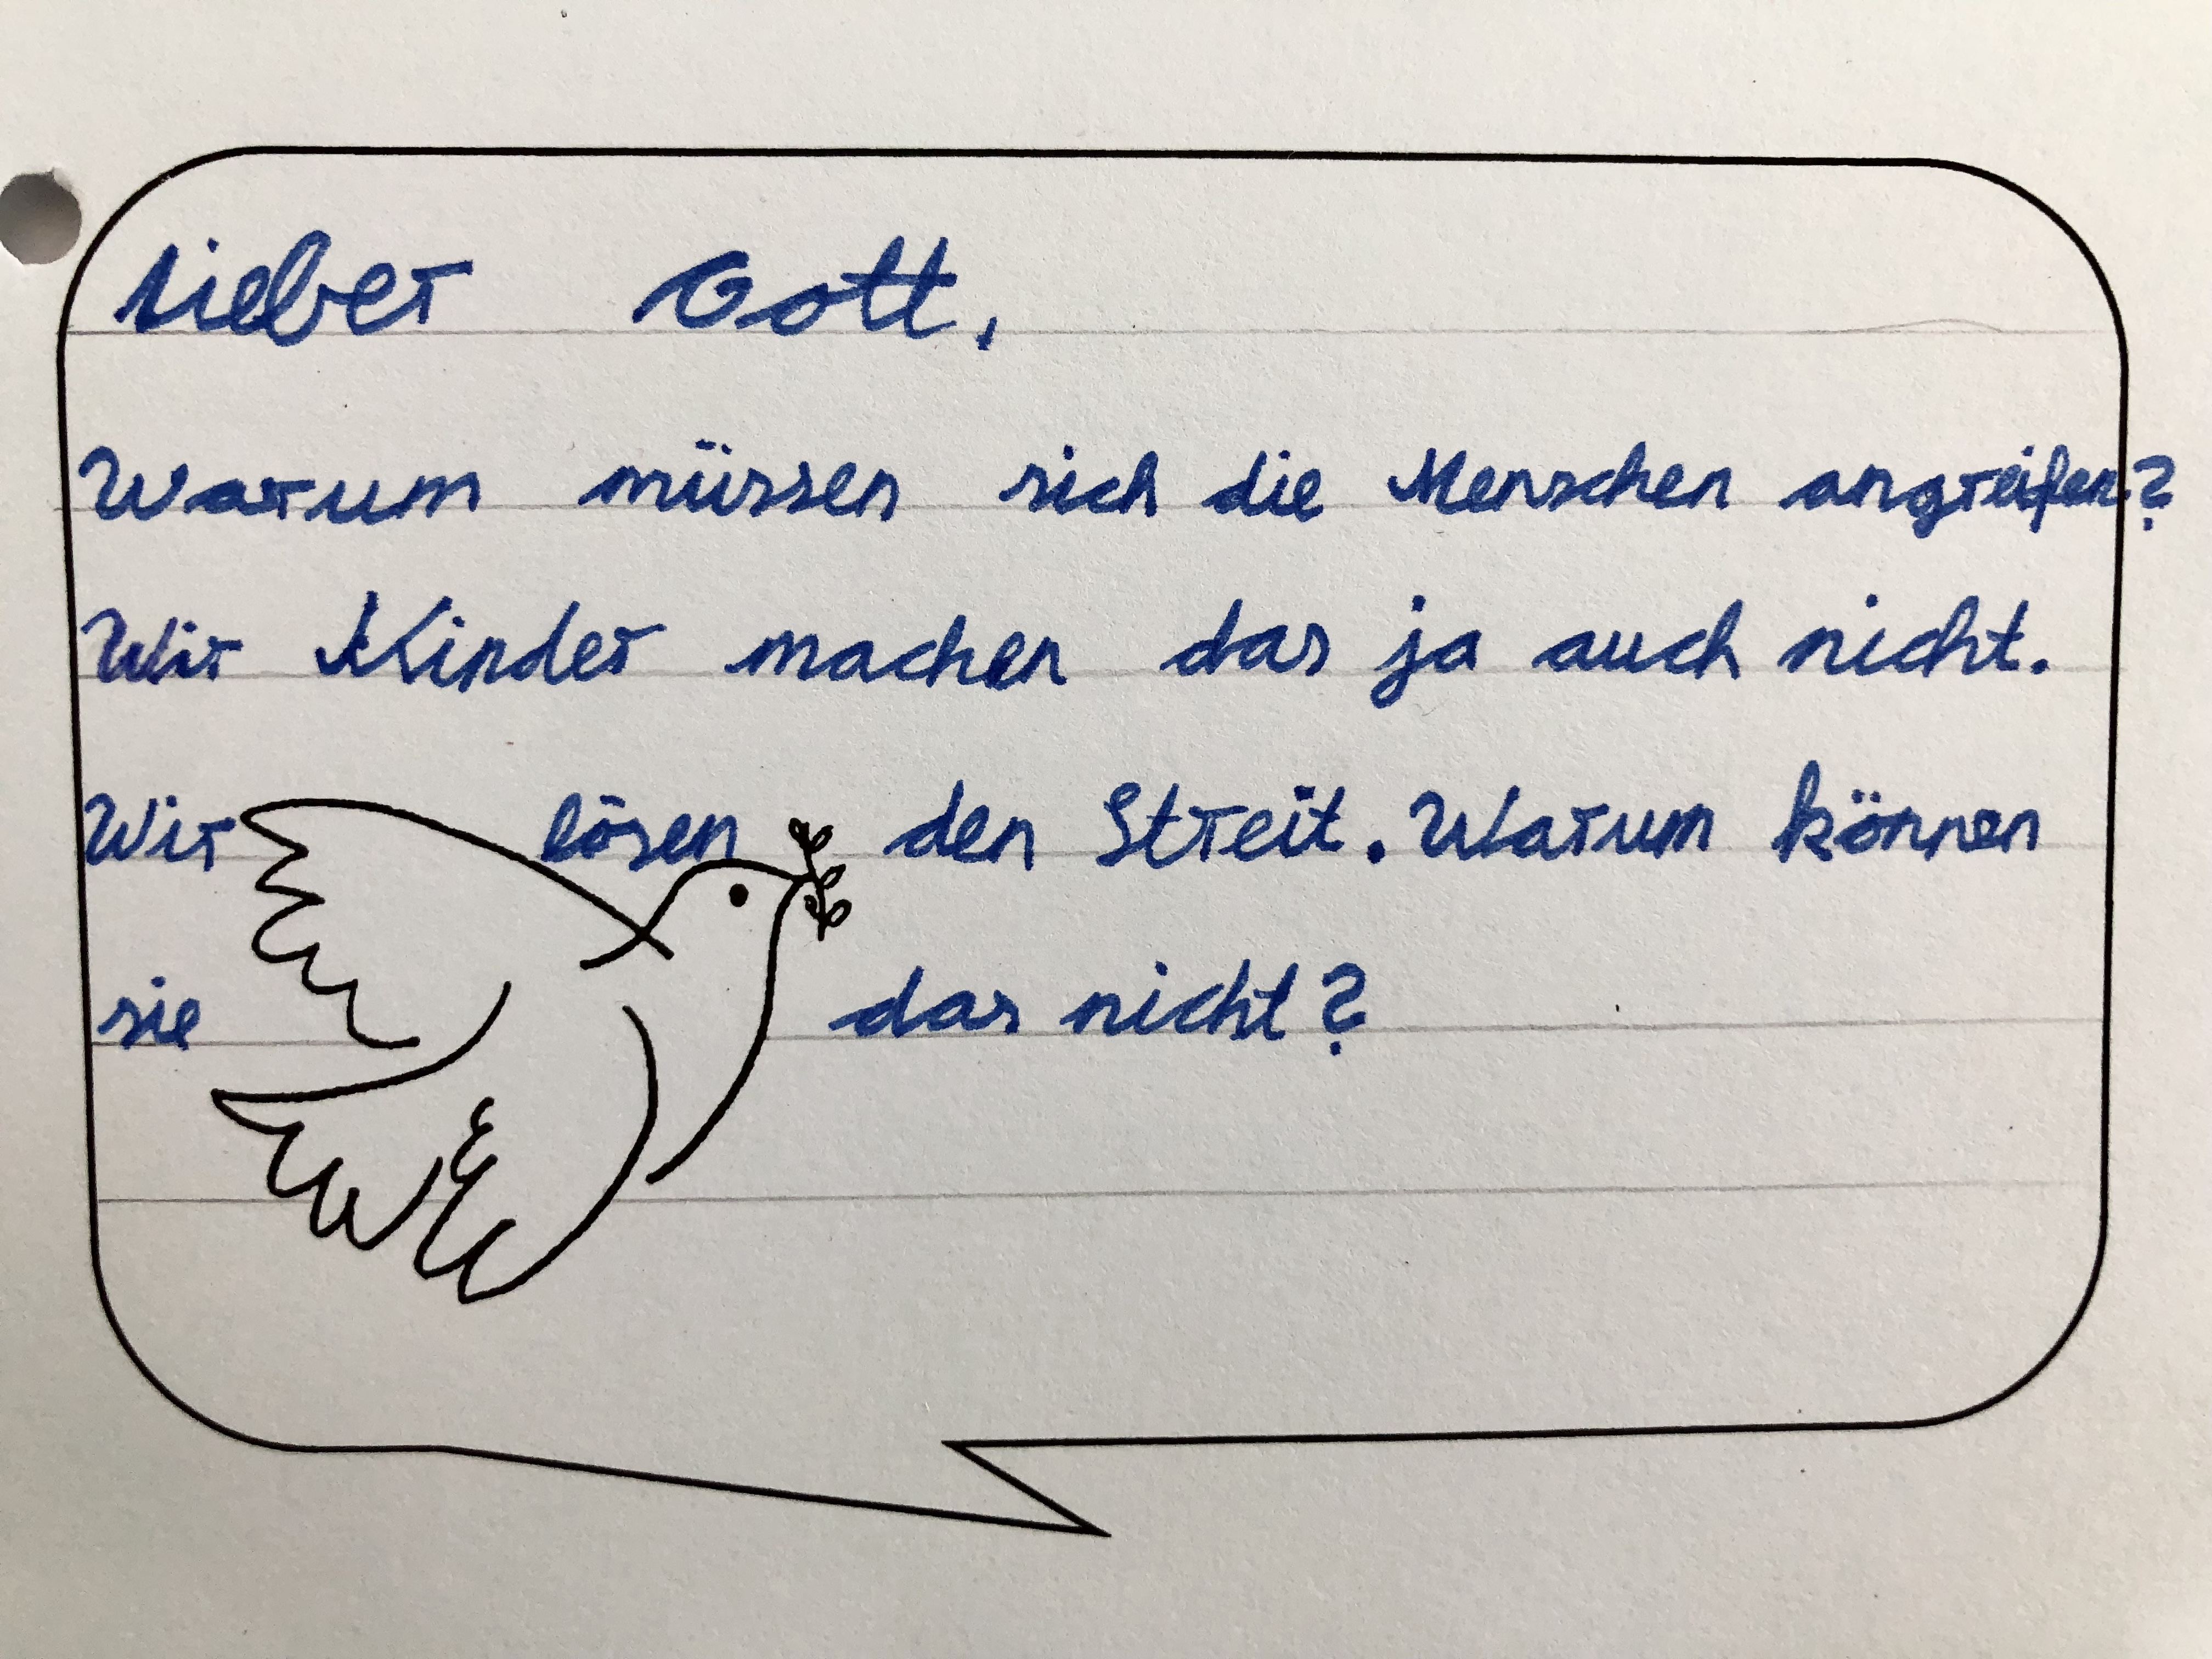 Lieber Gott,
Warum müssen sich die Menschen angreifen?
Wir Kinder machen das ja auch nicht.
Wir lösen den Streit. Warum können
sie das nicht?